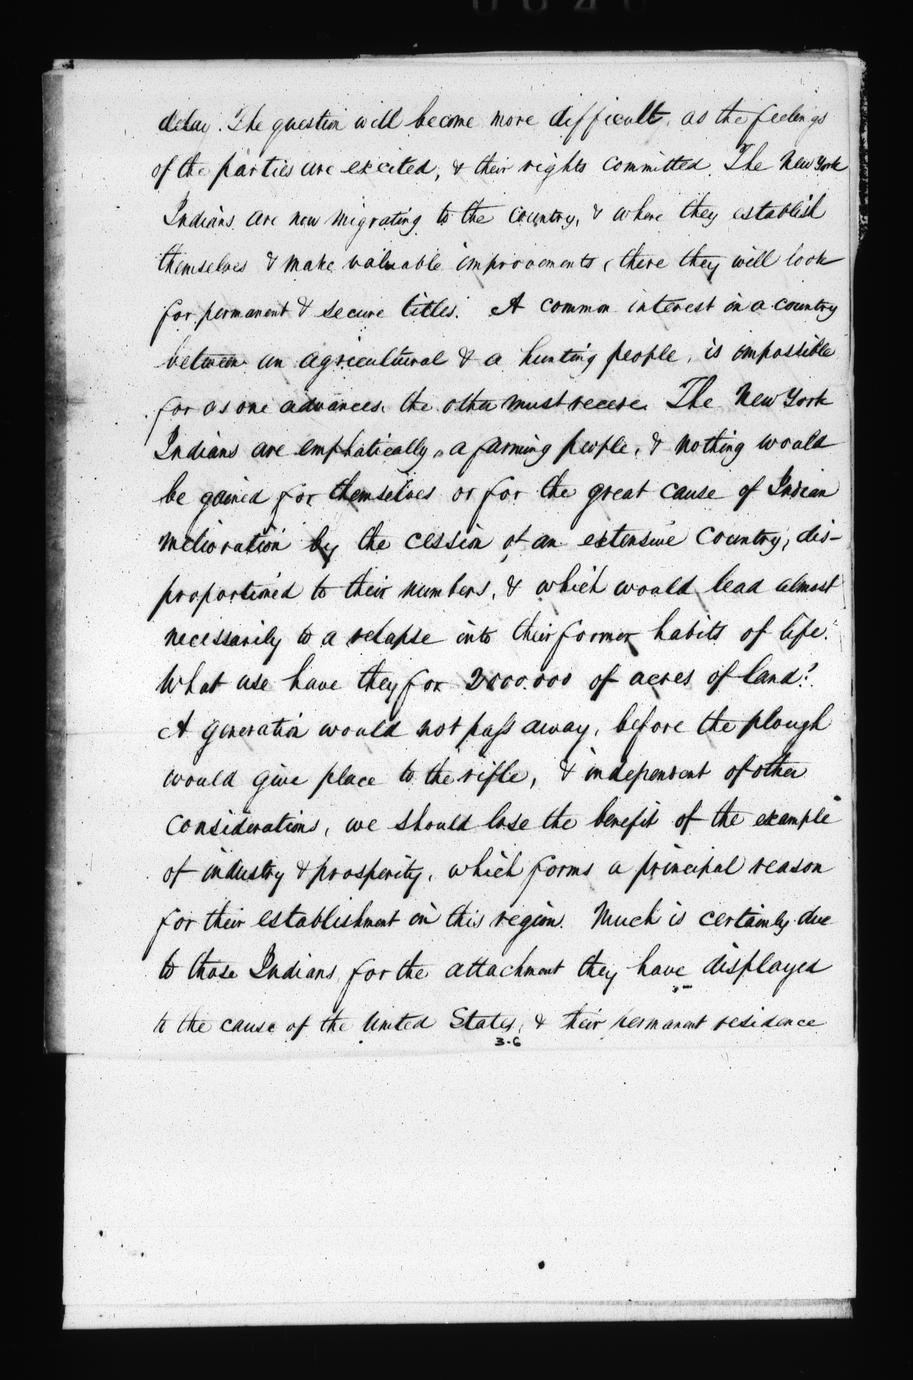 delay. The question will become more difficult, as the feelings
of the parties are excited, & their rights committed. The New York
Indians are now migrating to the country, & where they establish
themselves & make valuable improvements, there they will look
for permanent & secure titles. A common interest in a country
between an agricultural & a hunting people, is impossible
for as one advances, the other must recede. The New York
Indians are emphatically, a farming people, & nothing would
be gained for themselves or for the great cause of Indian
melioration by the cession of an extensive country, dis-
proportioned to their numbers, & which would lead almost
necessarily to a relapse into their former habits of life.
What use have they for 2000.000 of acres of land?
A generation would not pass away, before the plough
would give place to the rifle, & independent of other
considerations, we should lose the benefit of the example
of industry & prosperity, which forms a principal reason
for their establishment in this region. Much is certainly due
to those Indians for the attachment they have displayed
to the cause of the United States, & their permanent residence
3-6